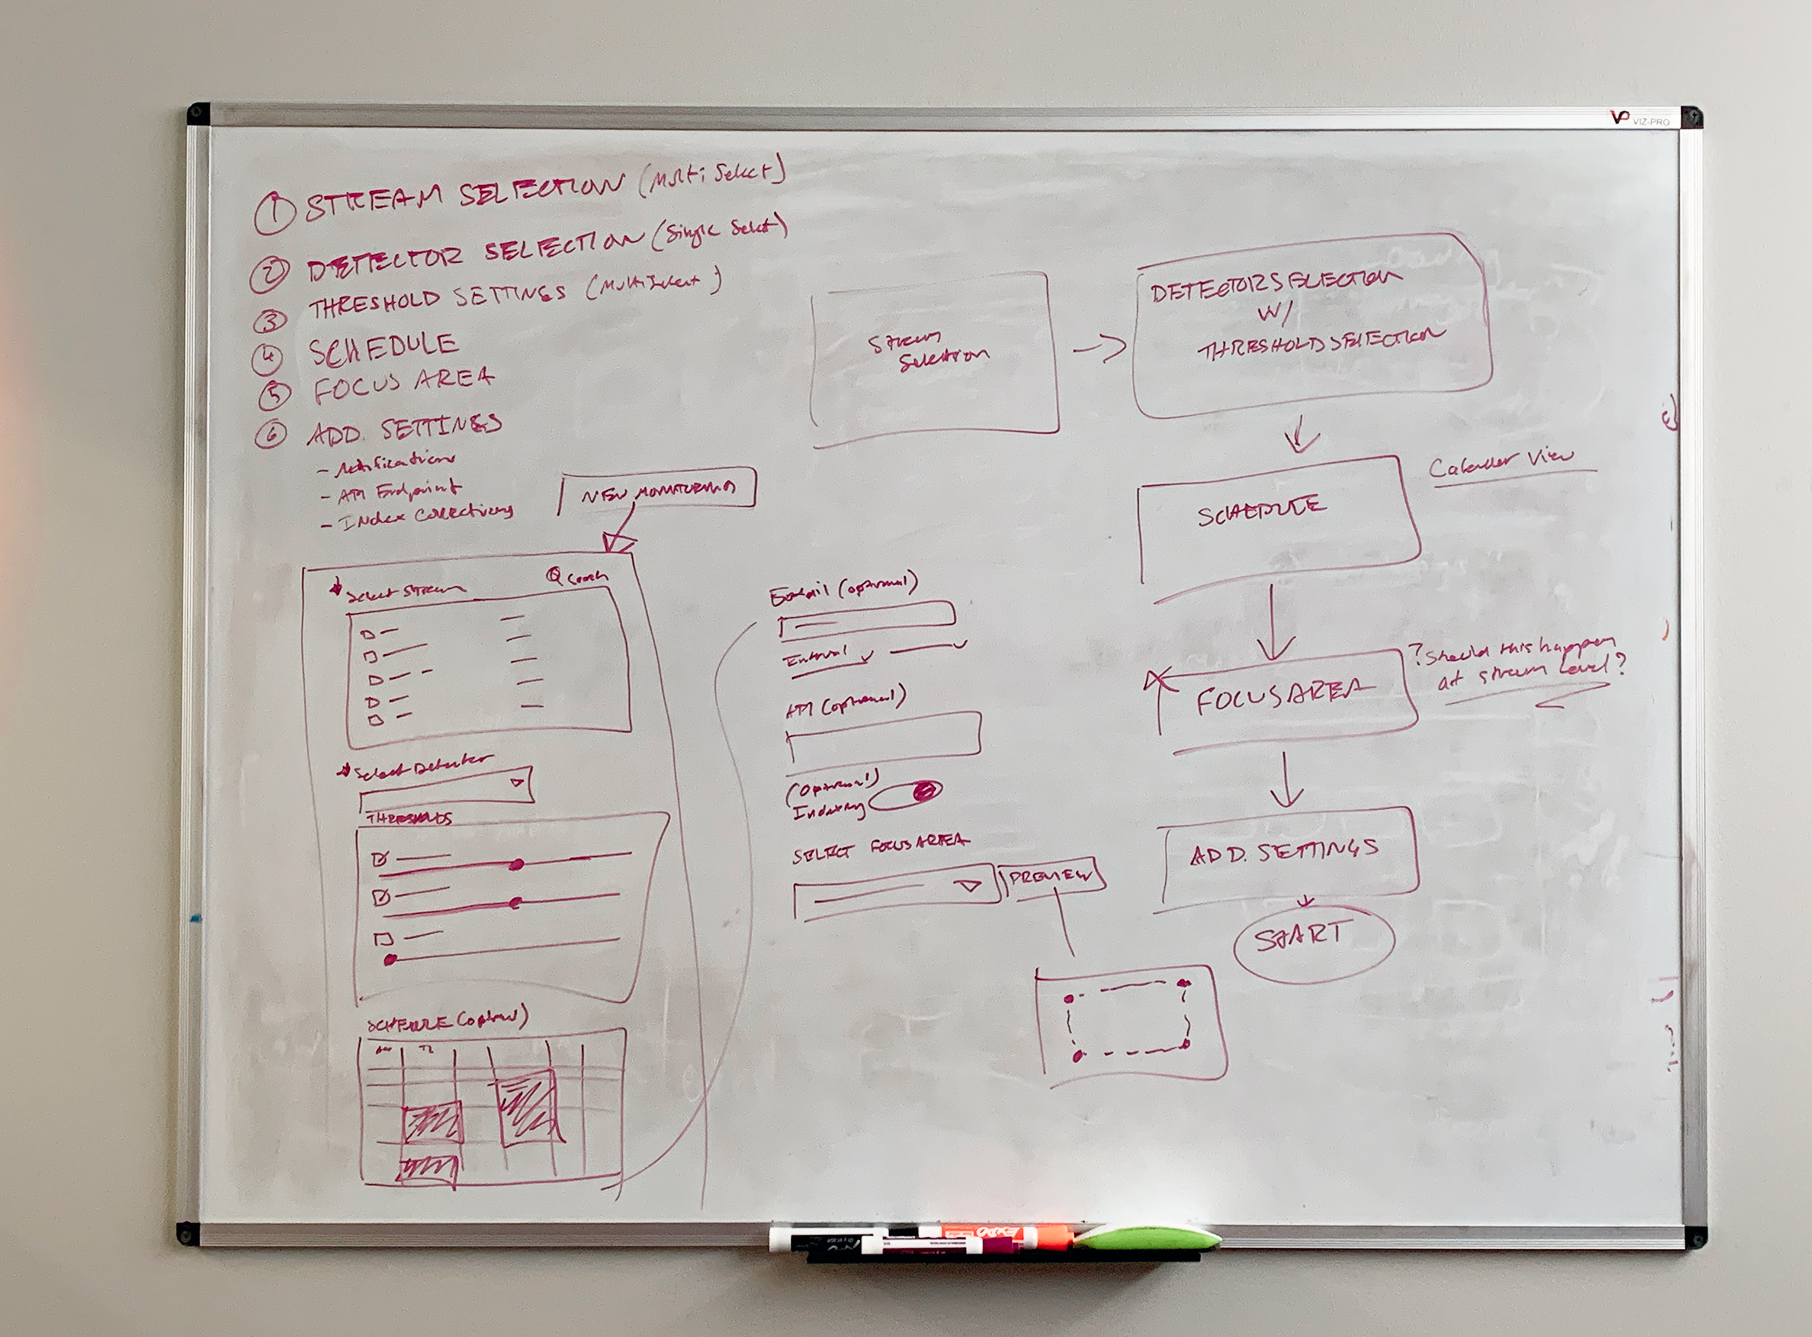 VIZ-PRO
① STREAM SELECTION (Multi Select)
② DETECTOR SELECTION (Single Select)
③ THRESHOLD SETTINGS (MultiSelect)
④ SCHEDULE
⑤ FOCUS AREA
⑥ ADD. SETTINGS
- Notifications
- API Endpoint
- Index Collections
NEW MONITORING
Select Stream
Select Detector
THRESHOLDS
SCHEDULE (optional)
Email (optional)
Interval
API (optional)
(Optional)
Indexing
SELECT FOCUS AREA
PREVIEW
Stream
Selection
DETECTOR SELECTION
W/
THRESHOLD SELECTION
SCHEDULE
Calender View
FOCUS AREA
? Should this happen
at stream level?
ADD. SETTINGS
START